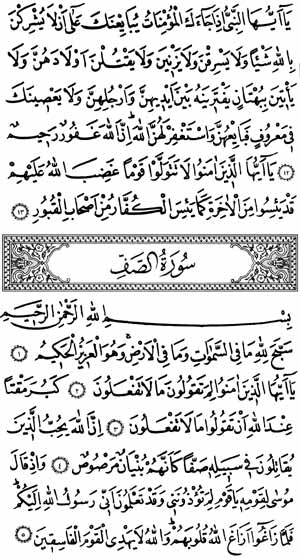 يَآ اَيُّهَا النَّبِيُّ اِذَا جَآءَكَ الْمُؤْمِنَاتُ يُبَايِعْنَكَ عَلٰٓى اَنْ لَا يُشْرِكْنَ
بِاللّٰهِ شَيْـًٔا وَلَا يَسْرِقْنَ وَلَا يَزْنِينَ وَلَا يَقْتُلْنَ اَوْلَادَهُنَّ وَلَا
يَأْتِينَ بِبُهْتَانٍ يَفْتَرِينَهُ بَيْنَ اَيْدِيهِنَّ وَاَرْجُلِهِنَّ وَلَا يَعْصِينَكَ
فِى مَعْرُوفٍ فَبَايِعْهُنَّ وَاسْتَغْفِرْ لَهُنَّ اللّٰهَ اِنَّ اللّٰهَ غَفُورٌ رَحِيمٌ
﴿١٢﴾ يَآ اَيُّهَا الَّذِينَ اٰمَنُوا لَا تَتَوَلَّوْا قَوْمًا غَضِبَ اللّٰهُ عَلَيْهِمْ
قَدْ يَئِسُوا مِنَ الْاٰخِرَةِ كَمَا يَئِسَ الْكُفَّارُ مِنْ اَصْحَابِ الْقُبُورِ ﴿١٣﴾
سُورَةُ الصَّفِّ
بِسْمِ اللّٰهِ الرَّحْمٰنِ الرَّحِيمِ
سَبَّحَ لِلّٰهِ مَا فِى السَّمٰوَاتِ وَمَا فِى الْاَرْضِ وَهُوَ الْعَزِيزُ الْحَكِيمُ ﴿١﴾
يَآ اَيُّهَا الَّذِينَ اٰمَنُوا لِمَ تَقُولُونَ مَا لَا تَفْعَلُونَ ﴿٢﴾ كَبُرَ مَقْتًا
عِنْدَ اللّٰهِ اَنْ تَقُولُوا مَا لَا تَفْعَلُونَ ﴿٣﴾ اِنَّ اللّٰهَ يُحِبُّ الَّذِينَ
يُقَاتِلُونَ فِى سَبِيلِهِ صَفًّا كَاَنَّهُمْ بُنْيَانٌ مَرْصُوصٌ ﴿٤﴾ وَاِذْ قَالَ
مُوسٰى لِقَوْمِهِ يَا قَوْمِ لِمَ تُؤْذُونَنِى وَقَدْ تَعْلَمُونَ اَنِّى رَسُولُ اللّٰهِ اِلَيْكُمْ
فَلَمَّا زَاغُٓوا اَزَاغَ اللّٰهُ قُلُوبَهُمْ وَاللّٰهُ لَا يَهْدِى الْقَوْمَ الْفَاسِقِينَ ﴿٥﴾